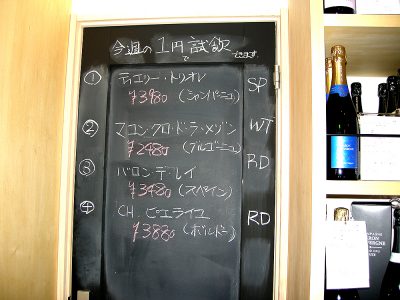 今週の1円で試飲できます。
① ティエリー・トリオレ SP
¥3980 (シャンパーニュ)
② マコン・クロ・ド・ラ・メゾン WT
¥2480 (ブルゴーニュ)
③ バロン・デ・レイ RD
¥3480 (スペイン)
④ CH. ピエライユ RD
¥3880 (ボルドー)